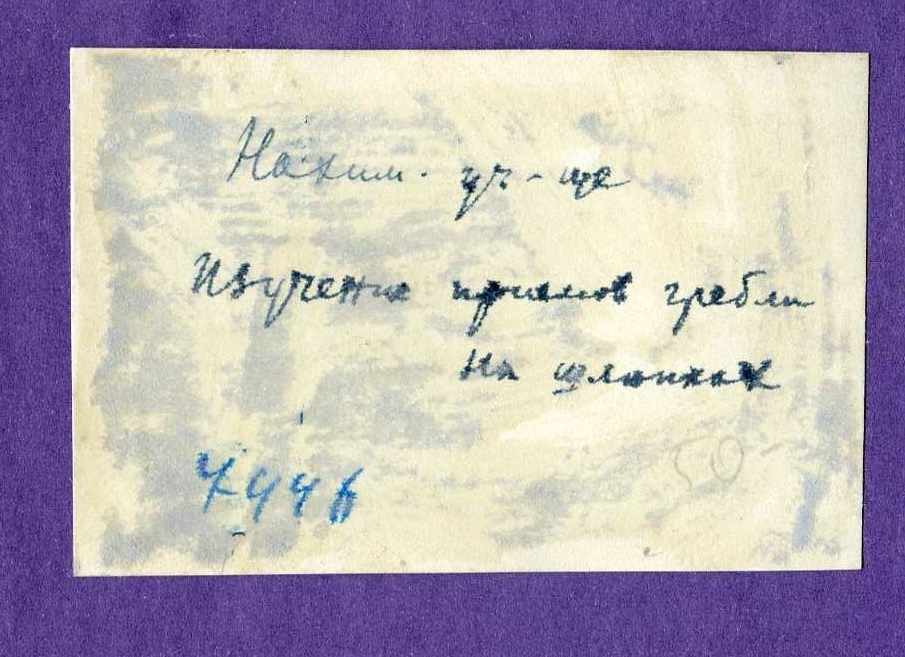 Нахим. уч-ще
Изучение приемов гребли
на шлюпках
50-